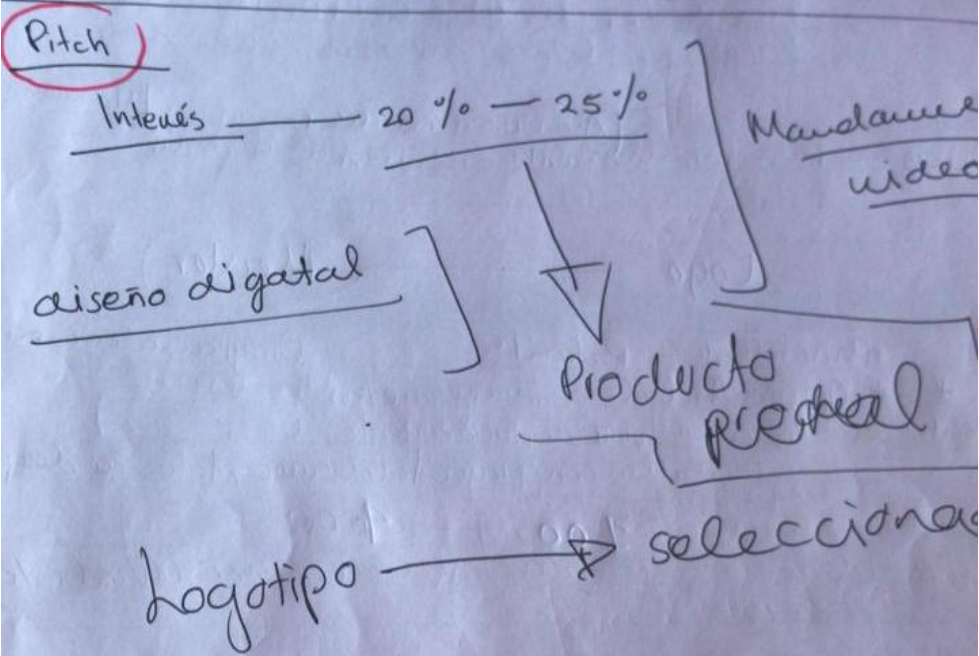 Pitch
Interés 20 % — 25 %
Mandarme
video
diseño digatal
Producto
Logotipo → selecciona